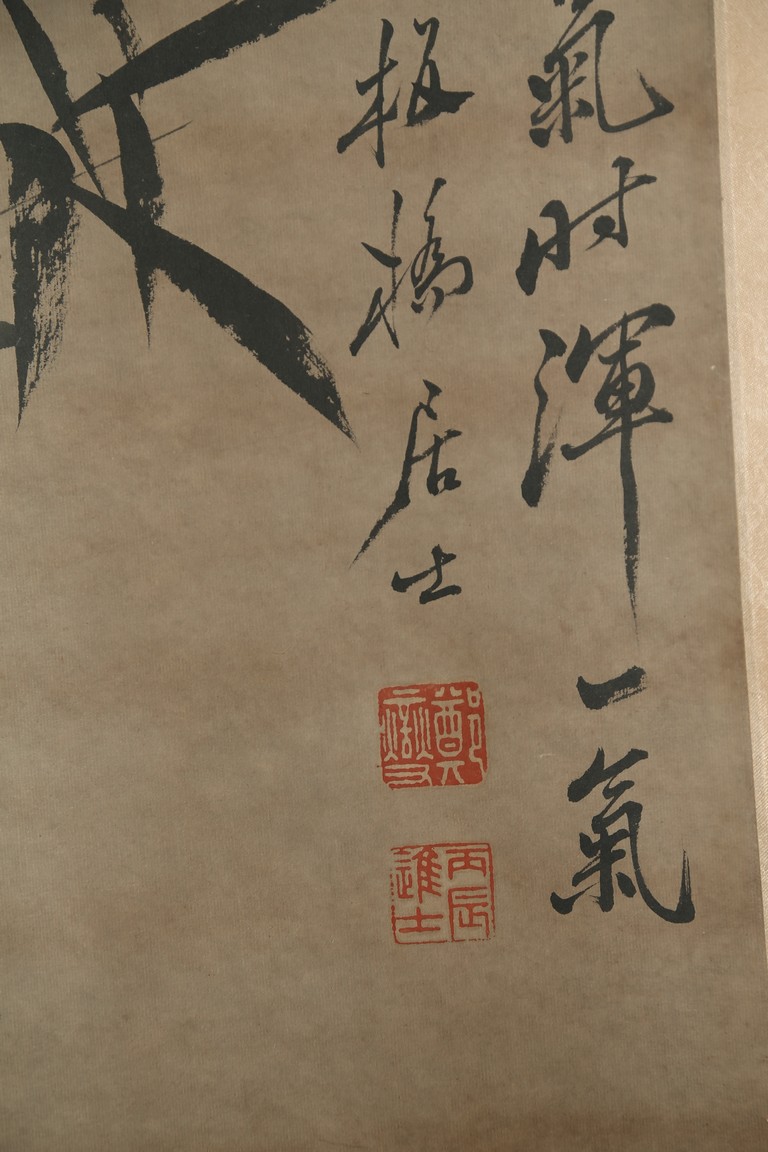 氣时渾一氣
板橋居士
鄭燮
丙辰進士